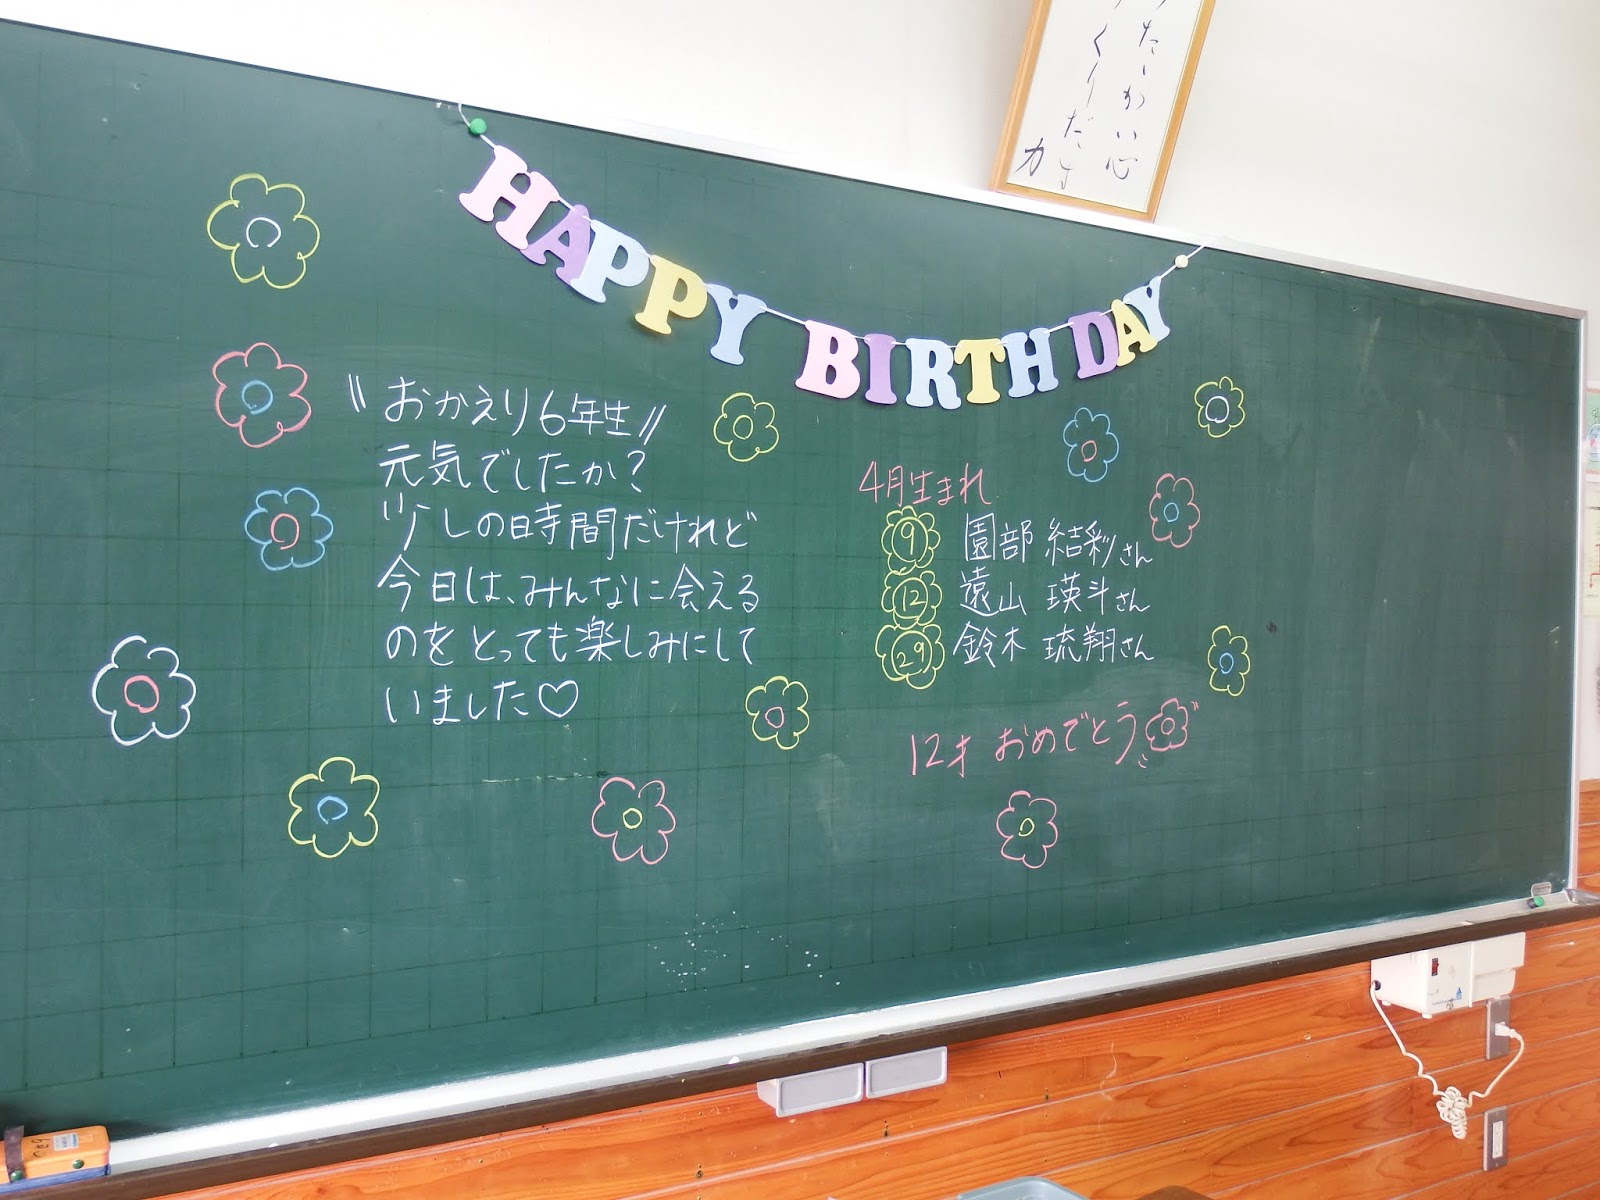 たかい心
つくりだす
力
HAPPY BIRTHDAY
\\おかえり6年生//
元気でしたか?
少しの時間だけれど
今日は、みんなに会える
のをとっても楽しみにして
いました♡
4月生まれ
9 園部 結彩さん
12 遠山 瑛斗さん
29 鈴木 琉翔さん
12才 おめでとう